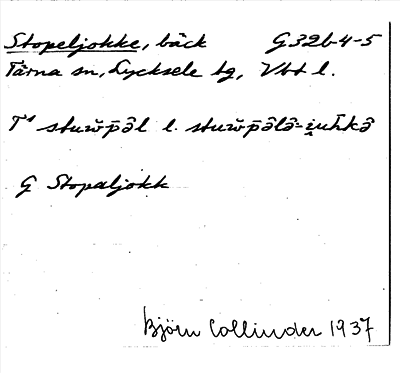 Stopeljokke, bäck G32b-4-5
Tärna sn, Lycksele tg, Vbt l.
T¹ stuw̆p̄ə̑l l. stuw̆p̄ə̑lə̑-i̯uh̄kə̑
G Stopaljokk
Björn Collinder 1937